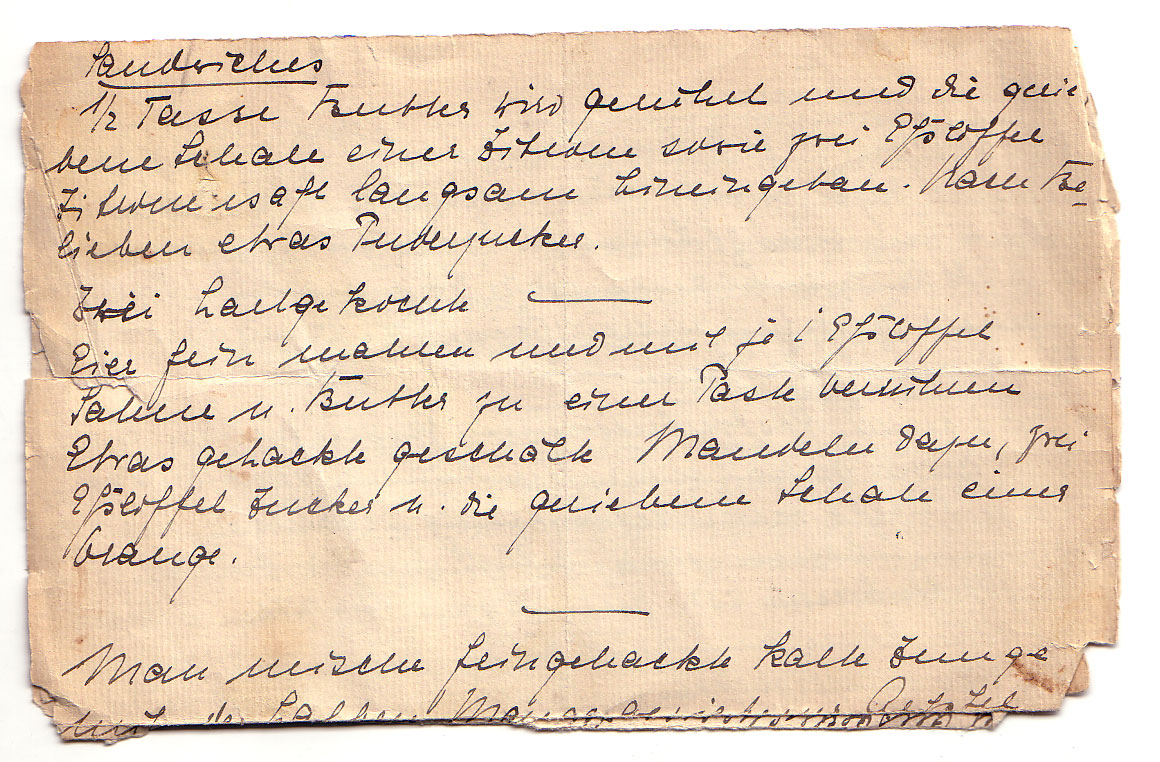 Sandwiches
1/2 Tasse Butter wird gerührt und die gerie
bene Schale einer Zitrone sowie zwei Eßlöffel
Zitronensaft langsam hineingetan. Nach Be-
lieben etwas Puderzucker.
Zwei hartgekochte
Eier fein mahlen und mit je 1 Eßlöffel
Sahne u. Butter zu einer Paste verrühren
Etwas gehackte geschälte Mandeln dazu, zwei
Eßlöffel Zucker u. die geriebene Schale einer
Orange.
Man mische feingehackte kalte Zunge
mit der halben